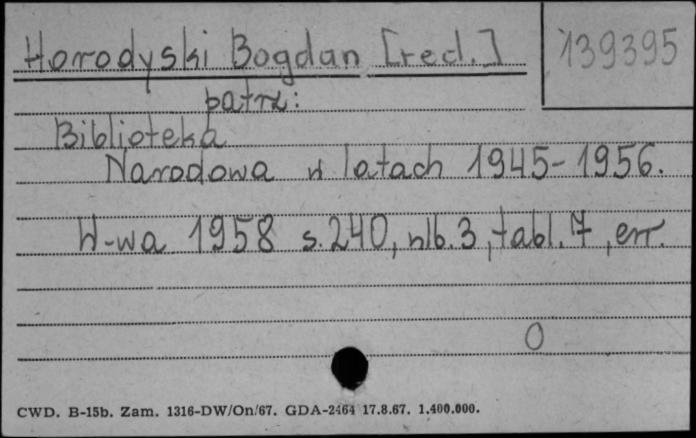 Horodyski Bogdan [red.] 139395
patrz:
Biblioteka
Narodowa w latach 1945-1956.
W-wa 1958 s. 240, nlb. 3, tabl. 7, err.
0
CWD. B-15b. Zam. 1316-DW/On/67. GDA-2464 17.8.67. 1.400.000.